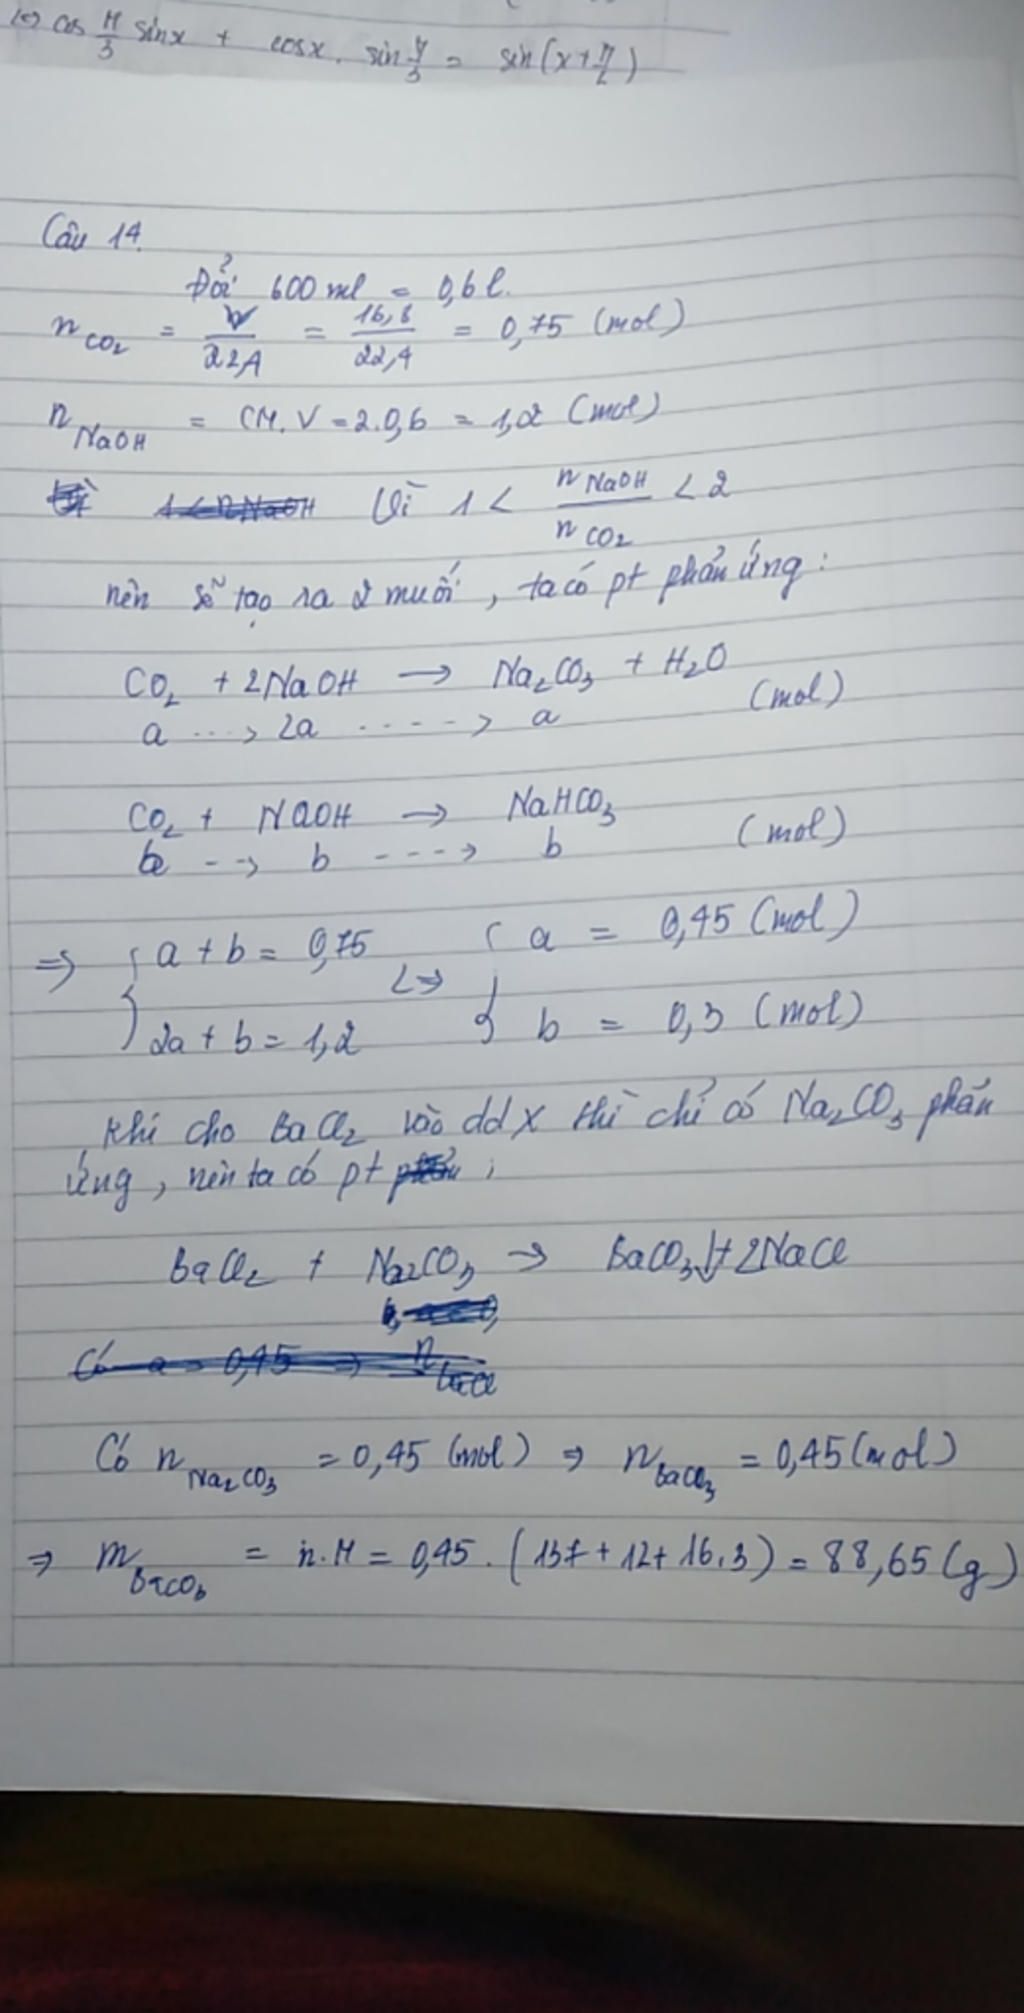 <=> cos π/3 sinx + cosx. sin π/3 = sin(x + π/2)
Câu 14.
Đổi 600 ml = 0,6 l.
nCO2 = V/22,4 = 16,8/22,4 = 0,75 (mol)
nNaOH = CM. V = 2.0,6 = 1,2 (mol)
Vì 1 < nNaOH/nCO2 < 2
nên sẽ tạo ra 2 muối, ta có pt phản ứng :
CO2 + 2NaOH → Na2CO3 + H2O
a ...> 2a .....> a (mol)
CO2 + NaOH → NaHCO3
b --> b ----> b (mol)
=> { a + b = 0,75 <=> { a = 0,45 (mol)
2a + b = 1,2 b = 0,3 (mol)
Khi cho BaCl2 vào dd X thì chỉ có Na2CO3 phản
ứng, nên ta có pt :
BaCl2 + Na2CO3 → BaCO3↓ + 2NaCl
Có a = 0,45 => n
Có nNa2CO3 = 0,45 (mol) => nBaCO3 = 0,45 (mol)
=> mBaCO3 = n.M = 0,45 . (137 + 12 + 16.3) = 88,65 (g)